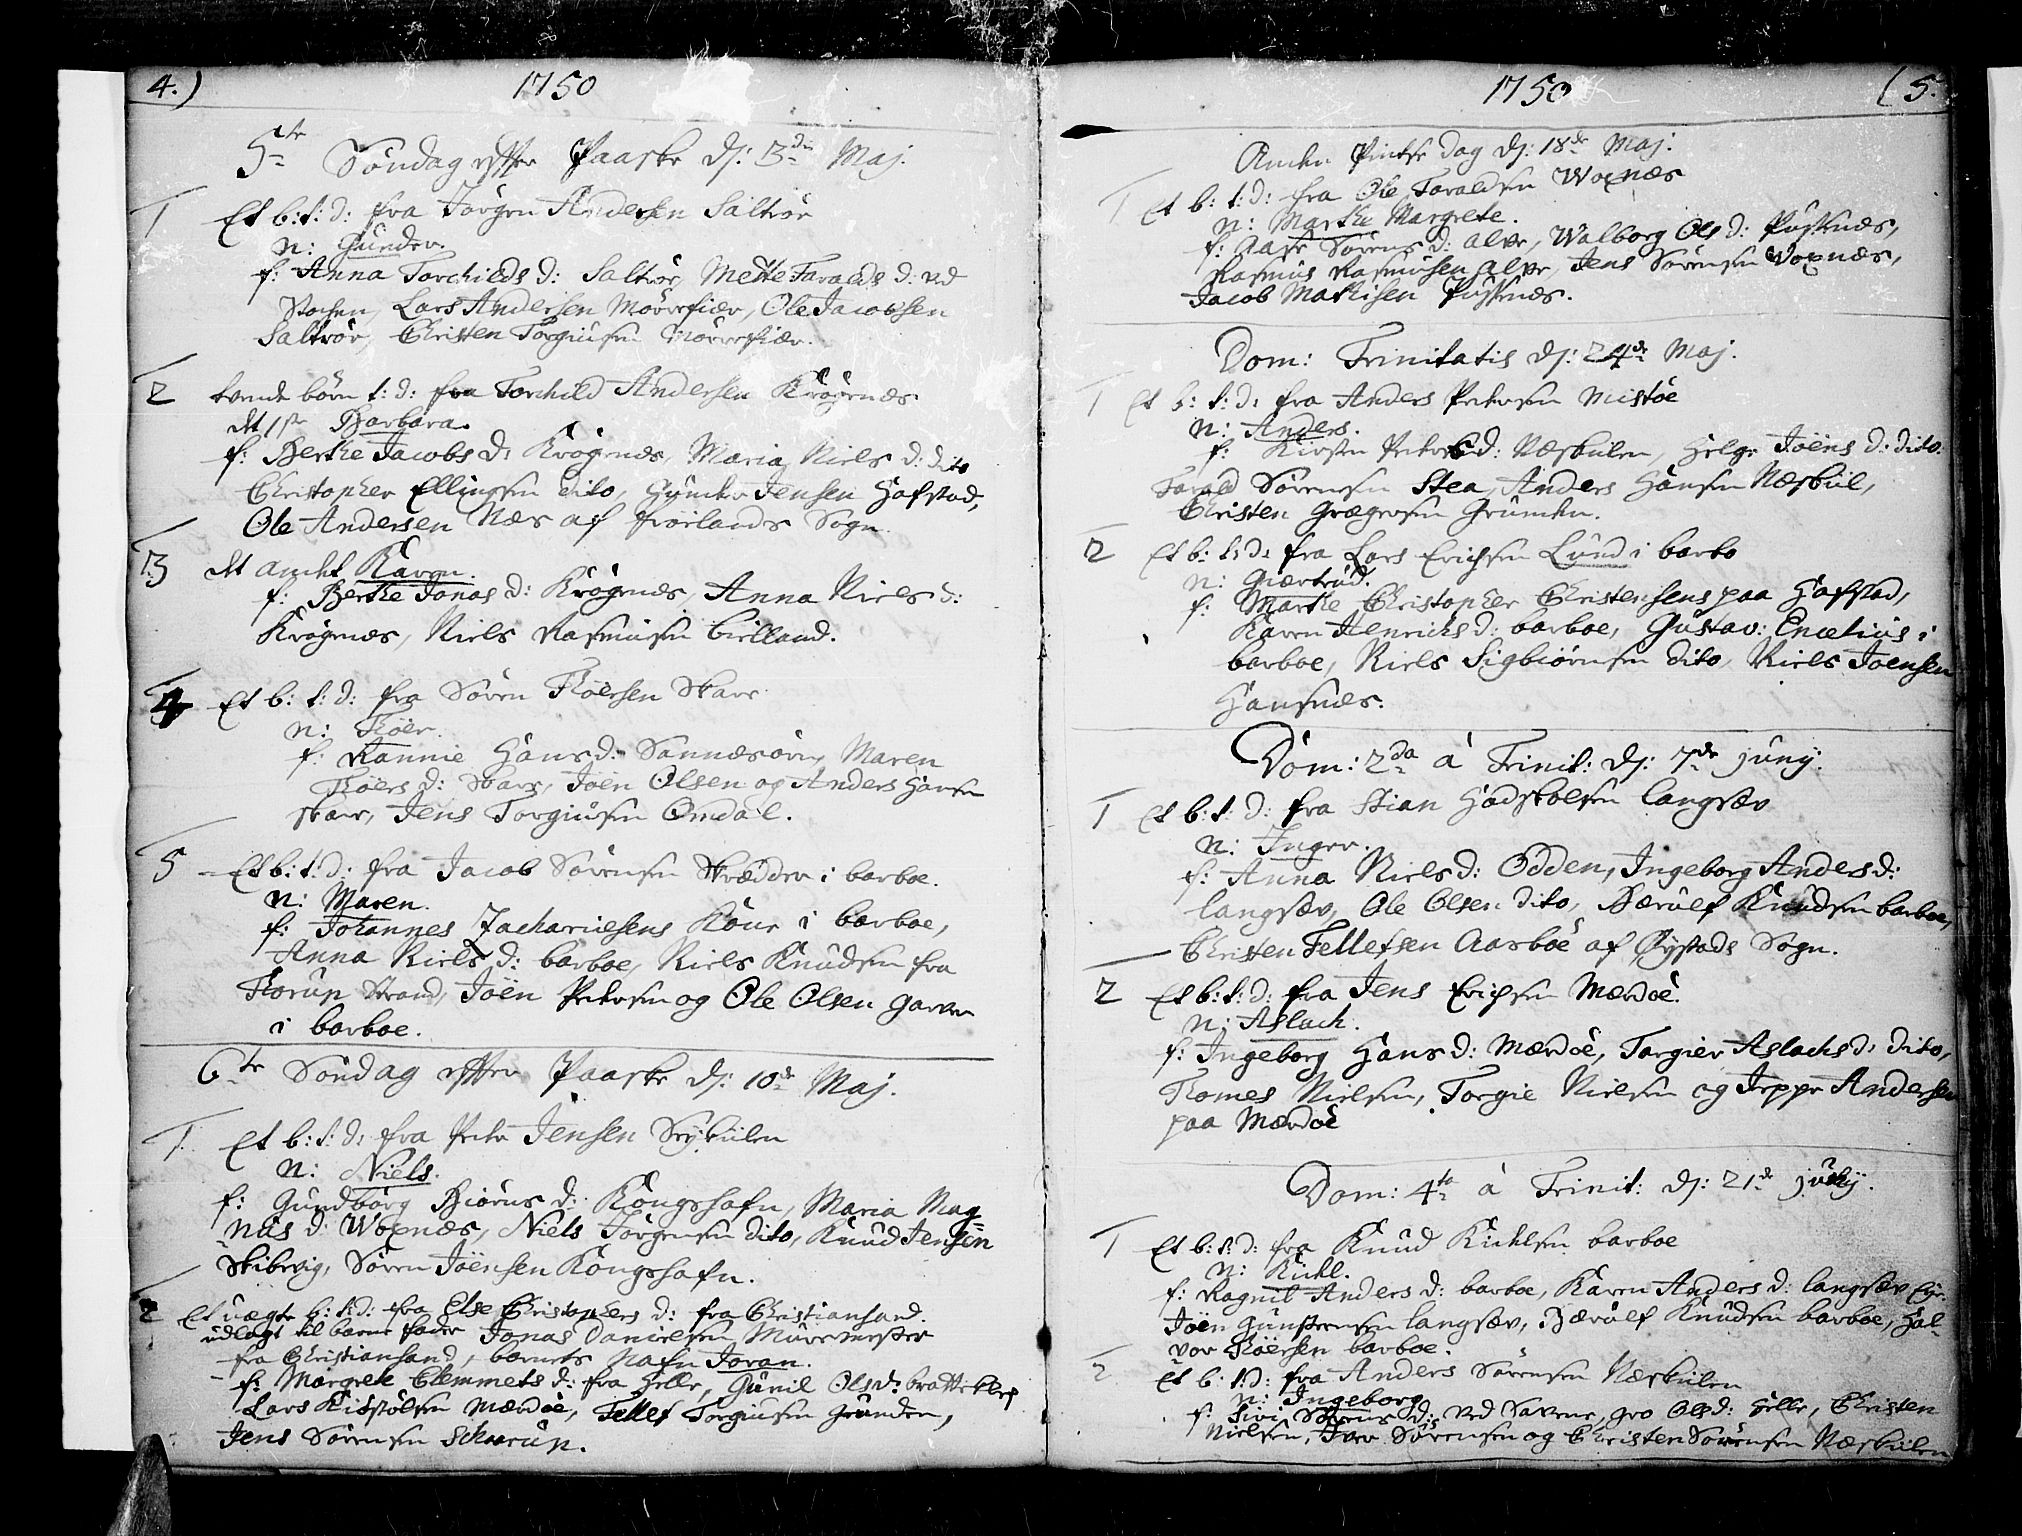 4.)
1750
5te Søndag efter Paaske d: 3die Maj.
1 Et b: t: d: fra Jørgen Andersen Saltrøe
n: Gunder.
f: Anna Torchilds d: Saltrøe, Mette Taralds d: ved
Stochen, Lars Andersen Mörrefiær, Ole Jacobsen
Saltrøe, Christen Torgiusen Mörrefiær.
2 tvende børn t: d: fra Torchild Andersen Krøgenes
det 1ste Barbara.
f: Berthe Jacobs d: Krøgenes, Maria Niels d: dito
Christopher Ellingsen dito, Gunder Jensen Hafstad,
Ole Andersen Næs af Froelands Sogn
3 det andet Karen.
f: Berthe Jonas d: Krøgenes, Anna Niels d:
Krøgenes, Niels Rasmusen bielland.
4 Et b: t: d: fra Søren Thöersen Skare
n: Thöer.
f: Rannie Hans d: Sannæsøen, Maren
Thöers d: Skare, Joen Olsen og Anders Hansen
skare, Jens Torgiusen Omdal.
5 Et b: t: d: fra Jacob Sørensen Skrædder i barboe.
n: Maren.
f: Johannes Zachariesens Kone i barboe,
Anna Niels d: barboe, Niels Knudsen fra
Thorup strand, Joen Pedersen og Ole Olsen garver
i barboe.
6te Søndag efter Paaske d: 10de Maj.
1. Et b: t: d: fra Peder Jensen Søykilen
n: Niels.
f: Gundborg Biörns d: Kongshafn, Maria Mag=
nus d: Woxnæs, Niels Jörgensen dito, Knud Jensen
Skibevig, Søren Joensen Kongshafn.
2 Et uægte b: t: d: fra Else Christophers d: fra Christiansand
udlagt til barne fader Jonas Danielsen Murremester
fra Christiansand, barnets nafn Joran.
f: Margrete Clemmets d: fra Helle, Gunil Ols d: brattekleif
Lars Kidstölsen Mærdöe, Tellef Torgiusen Grunden,
Jens Sørensen Schaarup.
1750
(5.
Anden Pintse dag d: 18de Maj.
1 Et b: t: d: fra Ole Taraldsen Woxnæs
n: Marthe Margrete.
f: Aase Sörens d: Alve, Walborg Ols d: Pusnes,
Rasmus Rasmusen Alve, Jens Sørensen Woxnæs,
Jacob Mathisen Pusnes.
Dom: Trinitatis d: 24de Maj.
1 Et b: t: d: fra Anders Pedersen Mistöe
n: Anders.
f: Kirsten Peders d: Næskilen, Helge Joens d: dito
Tarald Sørensen Stea, Anders Hansen Næskiil,
Christen Grægersen Grunden.
2 Et b: t: d: fra Lars Erichsen Lund i barbo
n: Giertrud.
f: Marthe Christopher Christensens paa Hafstad,
Karen Henrichs d: barboe, Gustav: Enæelius i
barboe, Niels Sigbiørnsen dito, Niels Joensen
Hansnæs.
Dom: 2da á Trinit: d: 7de Juny.
1 Et b: t: d: fra Stian Hadskolsen langsæv
n: Inger.
f: Anna Niels d: Odden, Ingeborg Anders d:
langsæv, Ole Olsen dito, Bærulf Knudsen barboe,
Christen Tellefsen Aasboe af Øystads Sogn.
2 Et b: t: d: fra Jens Erichsen Mærdöe.
n: Aslach.
f: Ingeborg Hans d: Mærdöe, Torgier Aslachs d: dito,
Thomes Nielsen, Torgie Nielsen og Jeppe Andersen
paa Mærdöe
Dom: 4ta á Trinit: d: 21de juny.
1 Et b: t: d: fra Knud Kichelsen barboe
n: Kichel.
f: Ragnil Anders d: barboe, Karen Anders d: langsæv
Joen Gunstensen langsæv, Bærulf Knudsen barboe, Hal-
vor Thöersen barboe.
2 Et b: t: d: fra Anders Sørensen Næskilen
n: Ingeborg
f: Siri Sörens d: ved Savene, Gro Ols d: Helle, Christen
Nielsen, Iver Sørensen og Christen Sørensen Næskilen